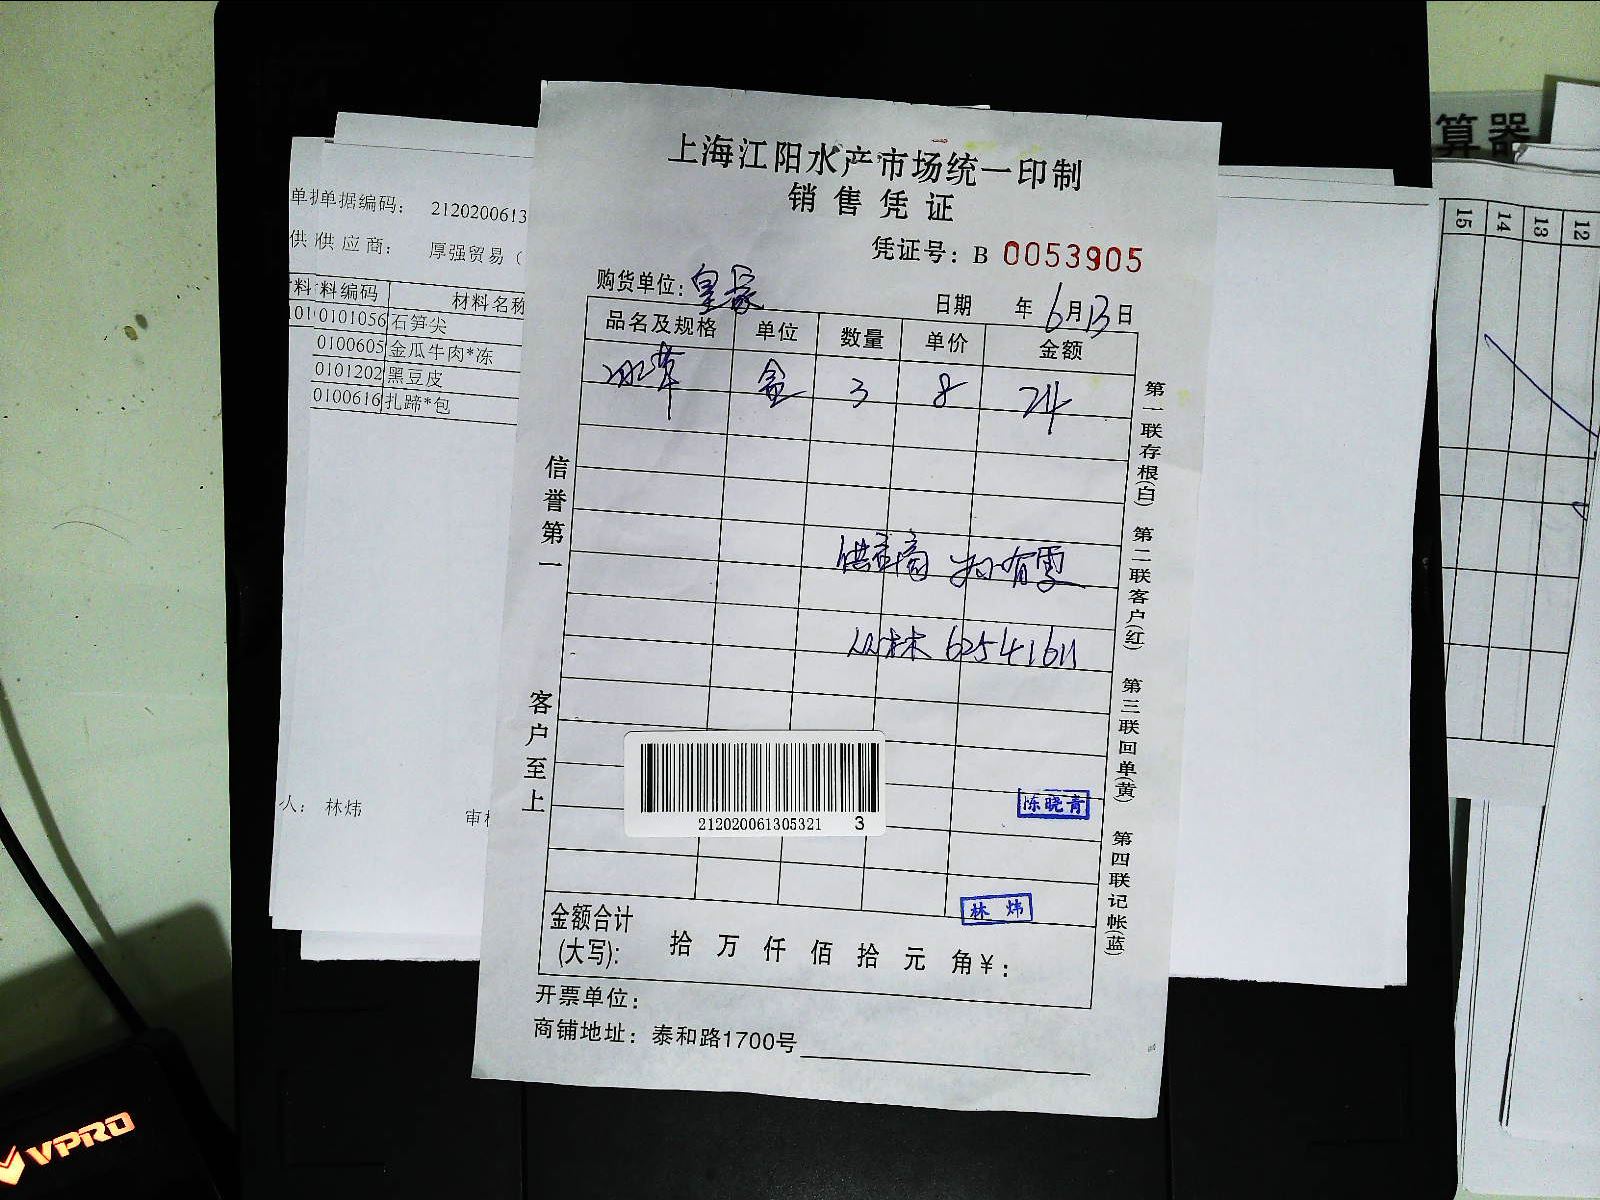 算器
15 14 13 12
单据编码： 2120200613
供 应 商： 厚强贸易（
料编码 材料名称
0101056 石笋尖
0100605 金瓜牛肉*冻
0101202 黑豆皮
0100616 扎蹄*包
人： 林炜
上海江阳水产市场统一印制
销售凭证
凭证号：B 0053905
购货单位：皇家 日期 年6月13日
品名及规格 单位 数量 单价 金额
冰草 盒 3 8 24
供应商
62541611
信誉第一 客户至上
第一联存根(白) 第二联客户(红) 第三联回单(黄) 第四联记帐(蓝)
212020061305321 3
陈晓青
林 炜
金额合计
(大写)： 拾 万 仟 佰 拾 元 角¥：
开票单位：
商铺地址：泰和路1700号
VPRO